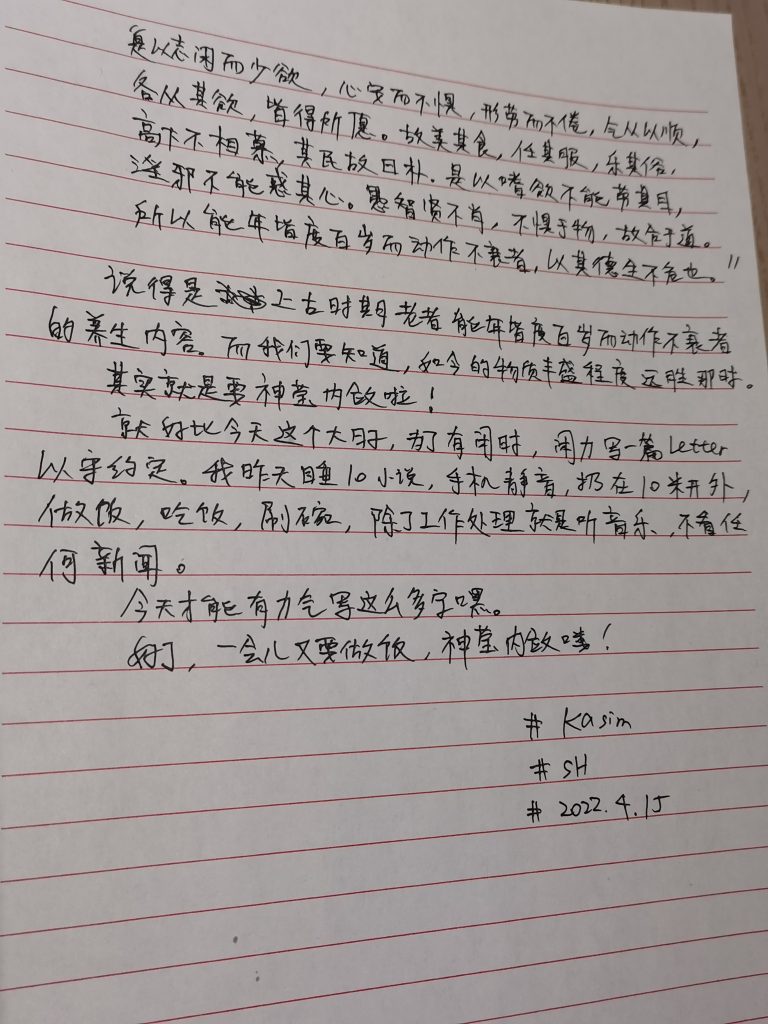 是以志闲而少欲，心安而不惧，形劳而不倦，气从以顺，
各从其欲，皆得所愿。故美其食，任其服，乐其俗，
高下不相慕，其民故曰朴。是以嗜欲不能劳其目，
淫邪不能惑其心。愚智贤不肖，不惧于物，故合于道。
所以能年皆度百岁而动作不衰者，以其德全不危也。”
说得是上古时期老者能年皆度百岁而动作不衰者
的养生内容。而我们要知道，如今的物质丰盛程度远胜那时。
其实就是要神莹内敛啦！
就好比今天这个大日子，为了有闲时，闲力写一篇Letter
以守约定。我昨天睡10小说，手机静音，扔在10米开外，
做饭，吃饭，刷碗，除了工作处理就是听音乐、不看任
何新闻。
今天才能有力气写这么多字嘿。
好了，一会儿又要做饭，神莹内敛喽！
# Kasim
# SH
# 2022.4.15